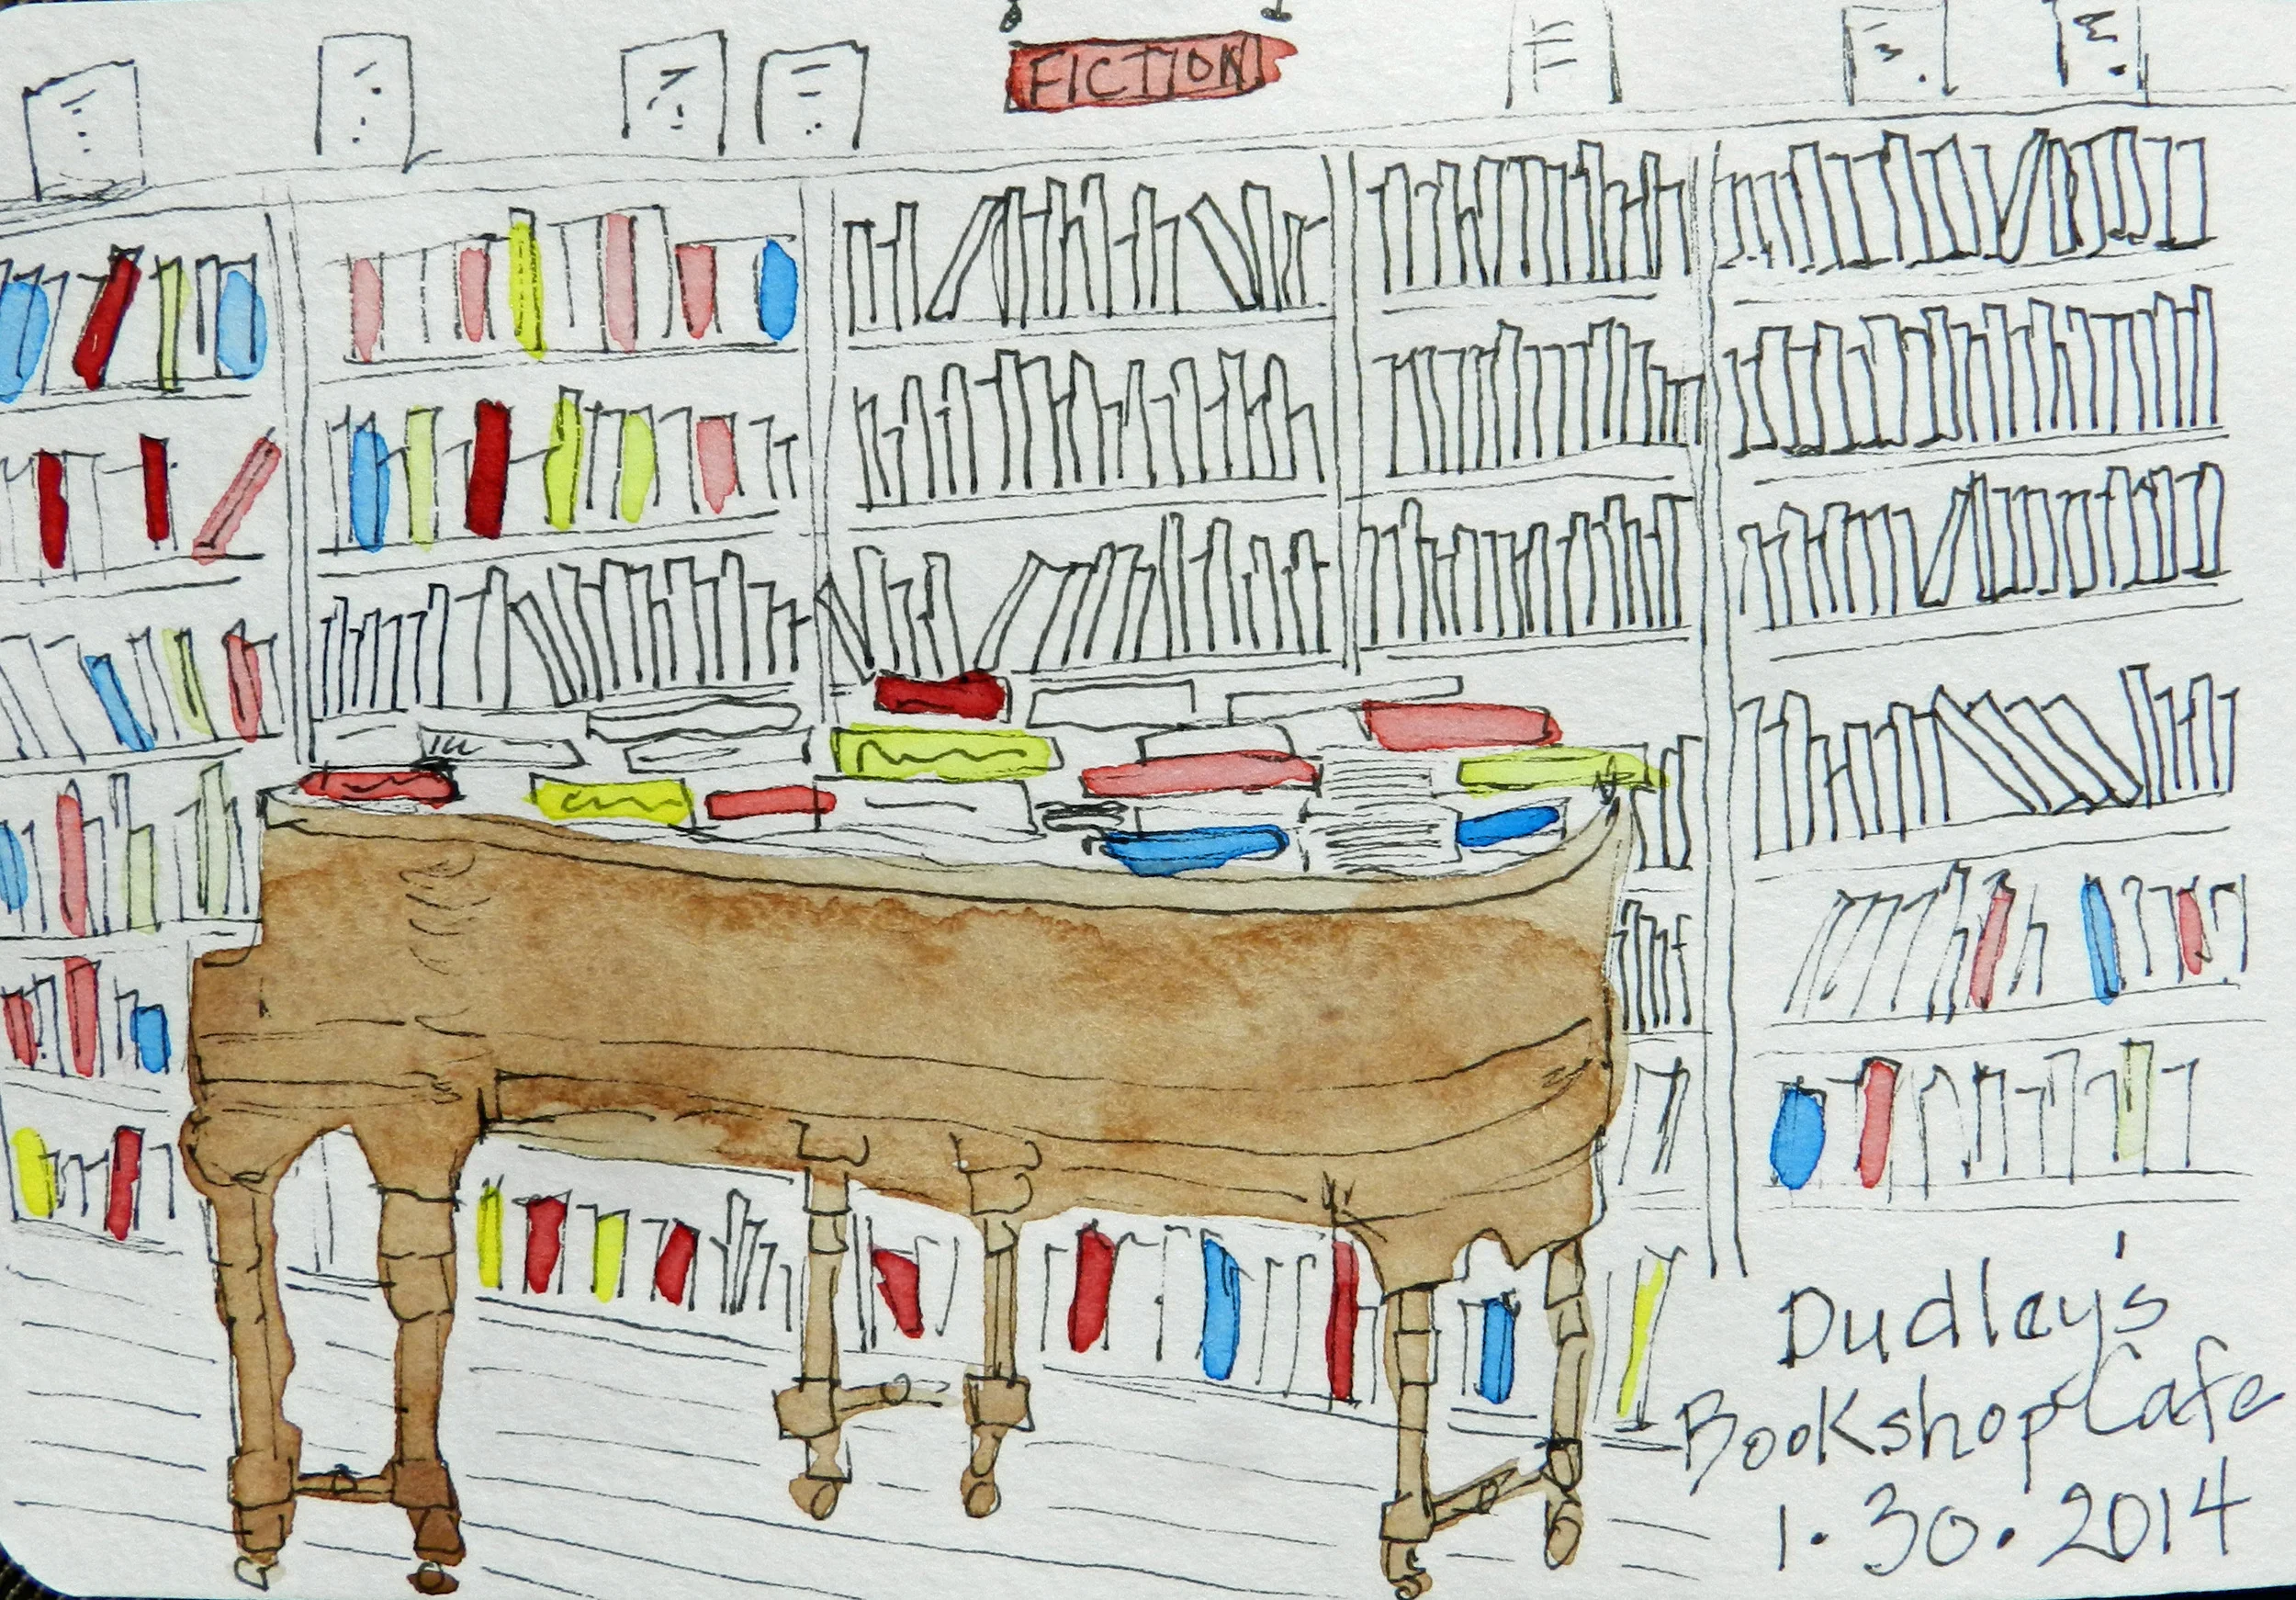 FICTION
Dudley's
Bookshop Cafe
1.30.2014